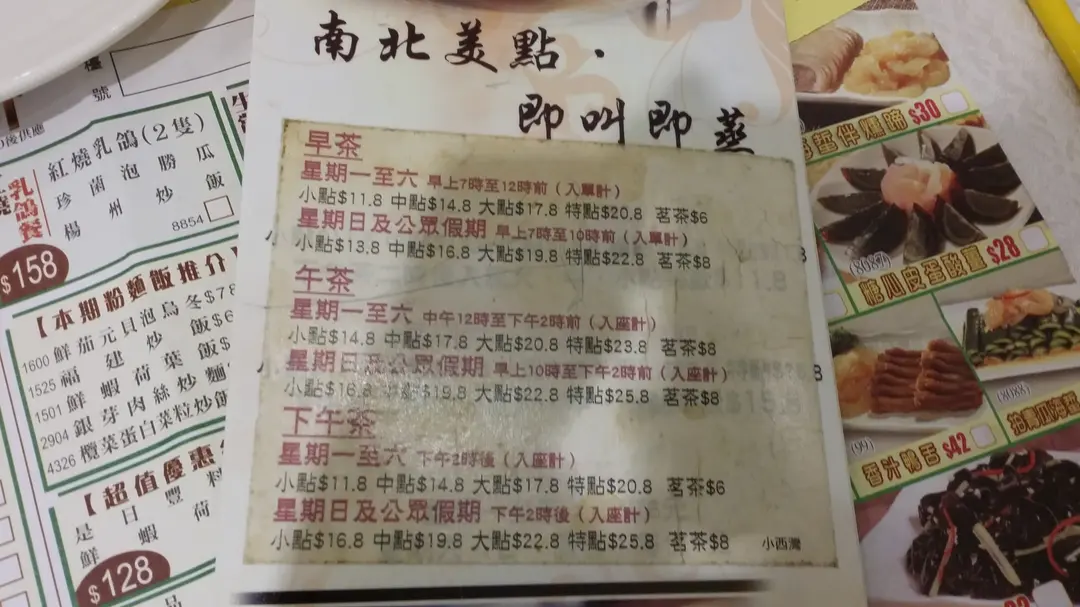 南北美點·
即叫即蒸
早茶
星期一至六 早上7時至12時前(入單計)
小點$11.8 中點$14.8 大點$17.8 特點$20.8 茗茶$6
星期日及公眾假期 早上7時至10時前(入單計)
小點$13.8 中點$16.8 大點$19.8 特點$22.8 茗茶$8
午茶
星期一至六 中午12時至下午2時前(入座計)
小點$14.8 中點$17.8 大點$20.8 特點$23.8 茗茶$8
星期日及公眾假期 早上10時至下午2時前(入座計)
小點$16.8 中點$19.8 大點$22.8 特點$25.8 茗茶$8
下午茶
星期一至六 下午2時後(入座計)
小點$11.8 中點$14.8 大點$17.8 特點$20.8 茗茶$6
星期日及公眾假期 下午2時後(入座計)
小點$16.8 中點$19.8 大點$22.8 特點$25.8 茗茶$8 小西灣
號
後供應
乳鴿餐
紅燒乳鴿(2隻)
珍菌泡勝瓜
楊州炒飯
8854
$158
【本期粉麵飯推介】
1600 鮮茄元貝泡烏冬$78
1525 福建炒飯$6
1501 鮮蝦荷葉飯$
2904 銀芽肉絲炒麵
4326 欖菜蛋白菜粒炒飯
【超值優惠
是日豐料
鮮蝦荷
$128
品
蜇伴燻蹄 $30
(8687) 糖心皮蛋酸薑 $28
(99) 香汁鴨舌 $42
(8088)